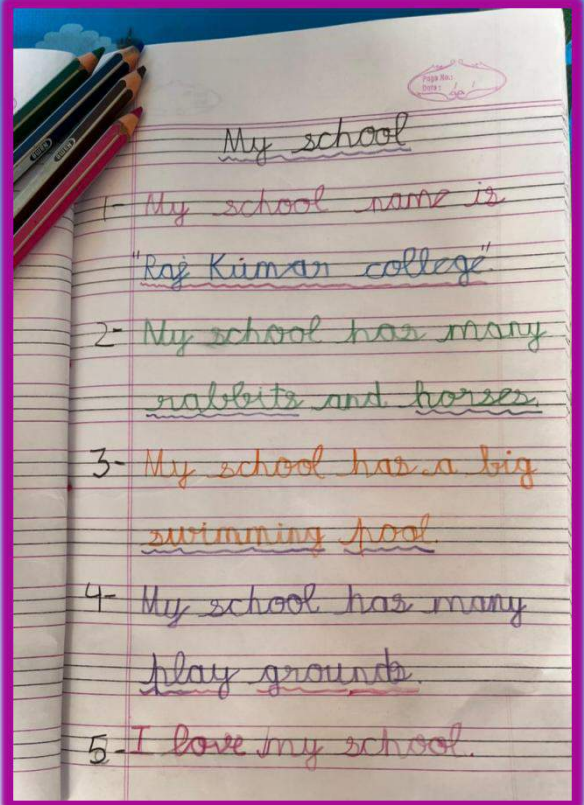 Page No.:
Date: / /
My school
1- My school name is
"Raj Kumar college".
2- My school has many
rabbits and horses.
3- My school has a big
swimming pool.
4- My school has many
play grounds.
5- I love my school.